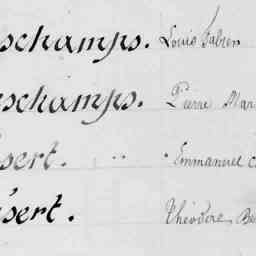 schamps. Louis Fabien
schamps. Pierre Mar
sert. Emmanuel C
sert. Théodore, Be